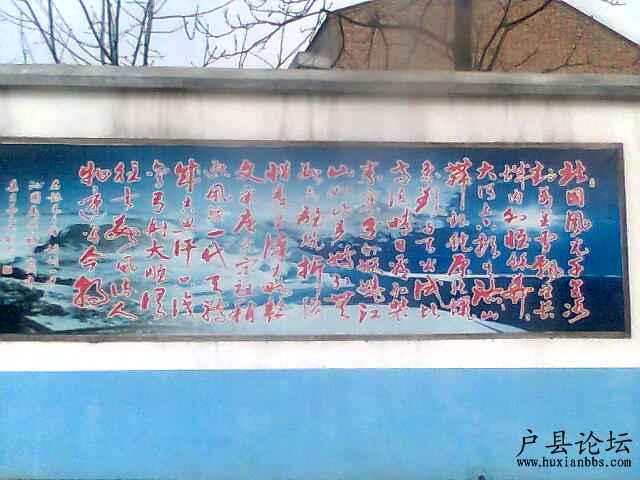 北国风光千里冰
封万里雪飘望长
城内外惟余莽莽
大河上下顿失滔滔山
舞银蛇原驰蜡
象欲与天公试比
高须晴日看红装
素裹分外妖娆江
山如此多娇引无
数英雄竞折腰
惜秦皇汉武略输
文采唐宗宋祖稍
逊风骚一代天骄
成吉思汗只识
弯弓射大雕俱
往矣数风流人
物还看今朝
户县论坛
www.huxianbbs.com